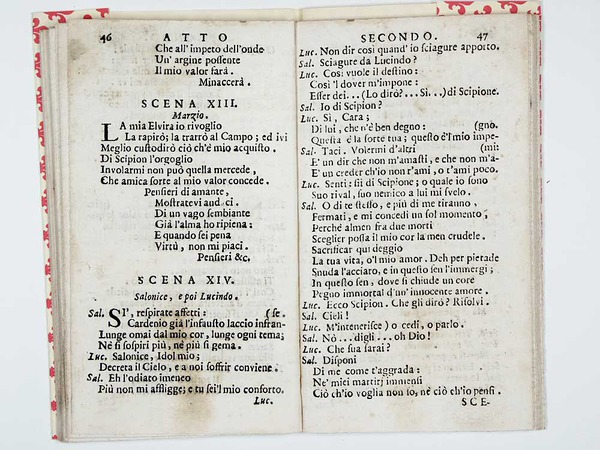 46 ATTO
Che all' impeto dell'onde
Un' argine possente
Il mio valor sarà.
Minaccerà.
SCENA XIII.
Marzio.
LA mia Elvira io rivoglio
La rapirò; la trarrò al Campo; ed ivi
Meglio custodirò ciò ch'è mio acquisto.
Di Scipion l'orgoglio
Involarmi non può quella mercede,
Che amica sorte al mio valor concede.
Pensieri di amante,
Mostratevi audaci.
Di un vago sembiante
Già l'alma ho ripiena:
E quando sei pena
Virtù, non mi piaci.
Pensieri &c.
SCENA XIV.
Salonice, e poi Lucindo.
Sal. SI', respirate affetti: (se.
Cardenio già l'infausto laccio infran-
Lunge omai dal mio cor, lunge ogni tema;
Nè si sospiri più, nè più si gema.
Luc. Salonice, Idol mio;
Decreta il Cielo, e a noi soffrir conviene.
Sal. Eh l'odiato imeneo
Più non mi affligge; e tu sei'l mio conforto.
Luc.
SECONDO. 47
Luc. Non dir così quand' io sciagure apporto.
Sal. Sciagure da Lucindo?
Luc. Cos: vuole il destino:
Così 'l dover m'impone:
Esser dei...(Lo dirò?...Sì...) di Scipione.
Sal. Io di Scipion?
Luc. Sì, Cara;
Di lui, che n'è ben degno: (gno.
Questa è la sorte tua; questo è'l mio impe-
Sal. Taci. Volermi d'altri (mi:
E' un dir che non m'amasti, e che non m'a-
E' un creder ch'io non t'ami, o t'ami poco.
Luc. Senti: sii di Scipione; o quale io sono
Suo rival, suo nemico a lui mi svelo.
Sal. O di te stesso, e più di me tiranno,
Fermati, e mi concedi un sol momento,
Perchè almen fra due morti
Sceglier possa il mio cor la men crudele.
Sacrificar qui deggio
La tua vita, o'l mio amor. Deh per pietade
Snuda l'acciaro, e in questo sen l'immergi;
In questo sen, dove si chiude un core
Pegno immortal d'un' innocente amore.
Luc. Ecco Scipion. Che gli dirò? Risolvi.
Sal. Cieli!
Luc. M'intenerisce) o cedi, o parlo.
Sal. Nò...digli...oh Dio!
Luc. Che sua sarai?
Sal. Disponi
Di me come t'aggrada:
Ne' miei martirj immensi
Ciò ch'io voglia non sò, nè ciò ch'io pensi.
SCE-